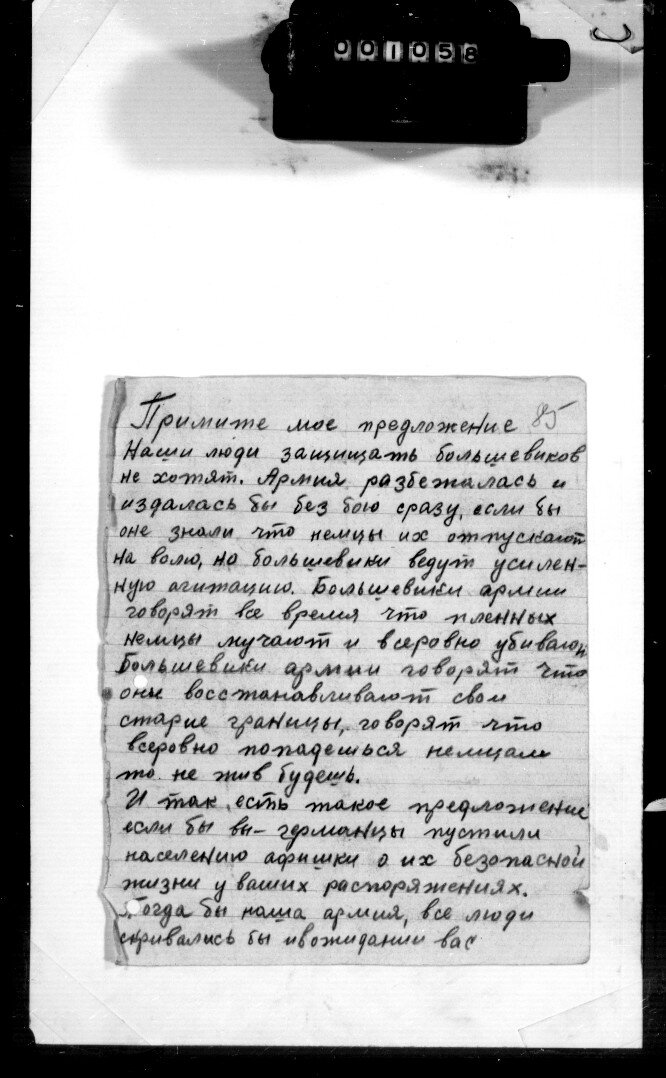 001058
85
Примите мое предложение
Наши люди защищать большевиков
не хотят. Армия разбежалась и
издалась бы без бою сразу, если бы
оне знали что немцы их отпускают
на волю, но большевики ведут усилен-
ную агитацию. Большевики армии
говорят все время что пленных
немцы мучают и всеровно убивают
Большевики армии говорят что
они восстанавливают свои
старие границы, говорят что
всеровно попадешься немцам
то не жив будешь.
И так, есть такое предложение
если бы вы- германцы пустили
населению афишки о их безопасной
жизни у ваших распоряжениях.
Тогда бы наша армия, все люди
скривались бы ивожидании вас